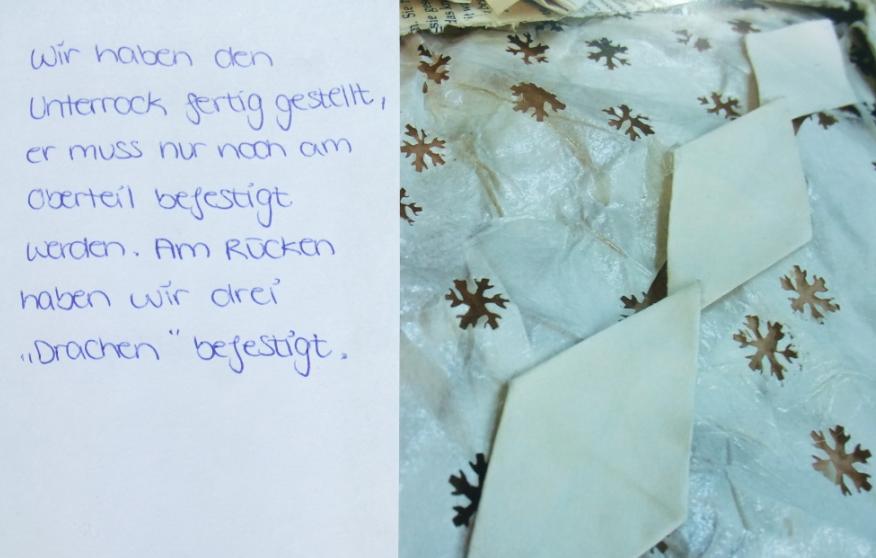 Wir haben den
Unterrock fertig gestellt,
er muss nur noch am
Oberteil befestigt
werden. Am Rücken
haben wir drei
„Drachen" befestigt.